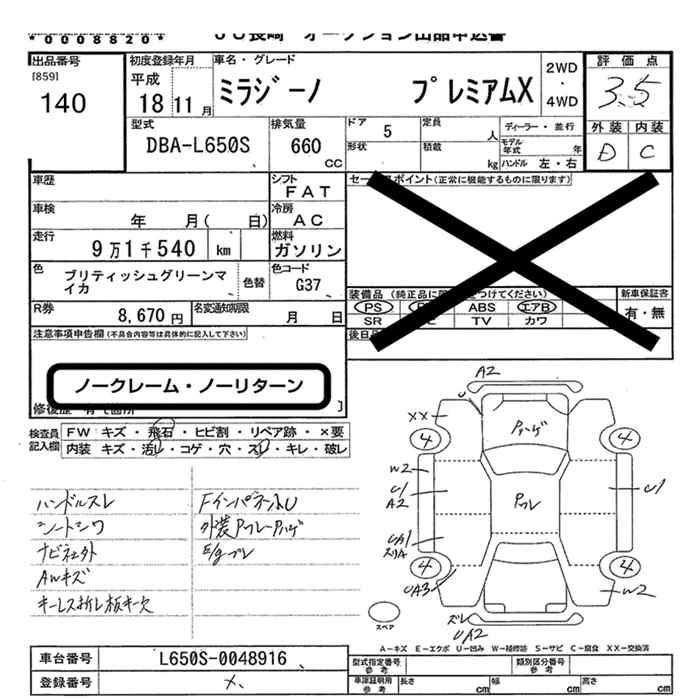 *0008820*
JU長崎 オークション出品申込書
出品番号 [859] 140
初度登録年月 平成 18 11月
車名・グレード ミラジーノ プレミアムX 2WD・4WD
評価点 3.5
外装 内装
D C
型式 DBA-L650S
排気量 660 cc
ドア 5 定員 人 ディーラー・並行
形状 積載 kg モデル年式 年
ハンドル 左・右
車歴
シフト FAT
車検 年 月( 日)
冷房 AC
走行 9万1千540 km
燃料 ガソリン
色 ブリティッシュグリーンマイカ 色替
色コード G37
R券 8,670円
名変通知期限 月 日
セールスポイント(正常に機能するものに限ります)
装備品
PS ABS エアB
SR TV カワ
新車保証書 有・無
後日
注意事項申告欄(不具合内容等は具体的に記入して下さい)
ノークレーム・ノーリターン
検査員記入欄
FW キズ・飛石・ヒビ割・リペア跡・×要
内装 キズ・汚レ・コゲ・穴・スレ・キレ・破レ
ハンドルスレ
シートシワ
ナビネェ外
AWキズ
キーレス折レ板キ欠
FインパネールU
外装Pフレ・Pハゲ
E/gブレ
A2
U
XX
Pハゲ
4 4
W2
U1
A2
Pフレ
U1
UA1
スリA
4 4
UA3
W2
ズレ
UA2
スペア
A-キズ E-エクボ U-凹み W-補修跡 S-サビ C-腐食 XX-交換済
車台番号 L650S-0048916
登録番号 ×
型式指定番号 参考
類別区分番号 参考
車庫証明用 参考 長さ cm 幅 cm 高さ cm